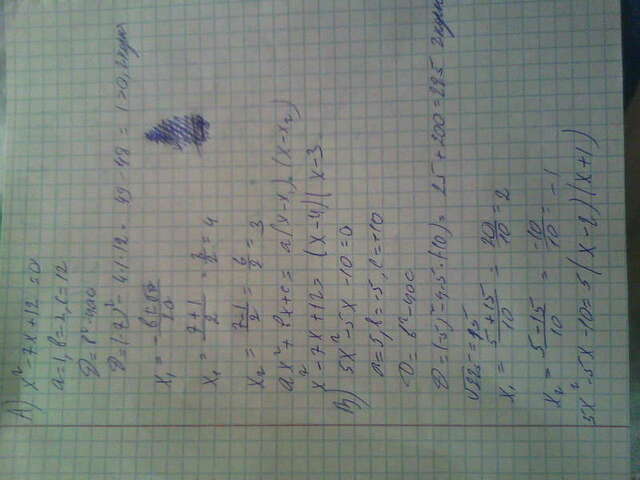 А) x² - 7x + 12 = 0
a = 1, b = -7, c = 12
D = b² - 4ac
D = (-7)² - 4·1·12 = 49 - 48 = 1 > 0, 2 корня
x₁ =
x₁ = (7+1)/2 = 8/2 = 4
x₂ = (7-1)/2 = 6/2 = 3
ax² + bx + c = a(x - x₁)(x - x₂)
x² - 7x + 12 = (x - 4)(x - 3
В) 5x² - 5x - 10 = 0
a = 5, b = -5, c = -10
D = b² - 4ac
D = (-5)² - 4·5·(-10) = 25 + 200 = 225 2 корня
√225 = 15
x₁ = (5+15)/10 = 20/10 = 2
x₂ = (5-15)/10 = -10/10 = -1
5x² - 5x - 10 = 5(x - 2)(x + 1)